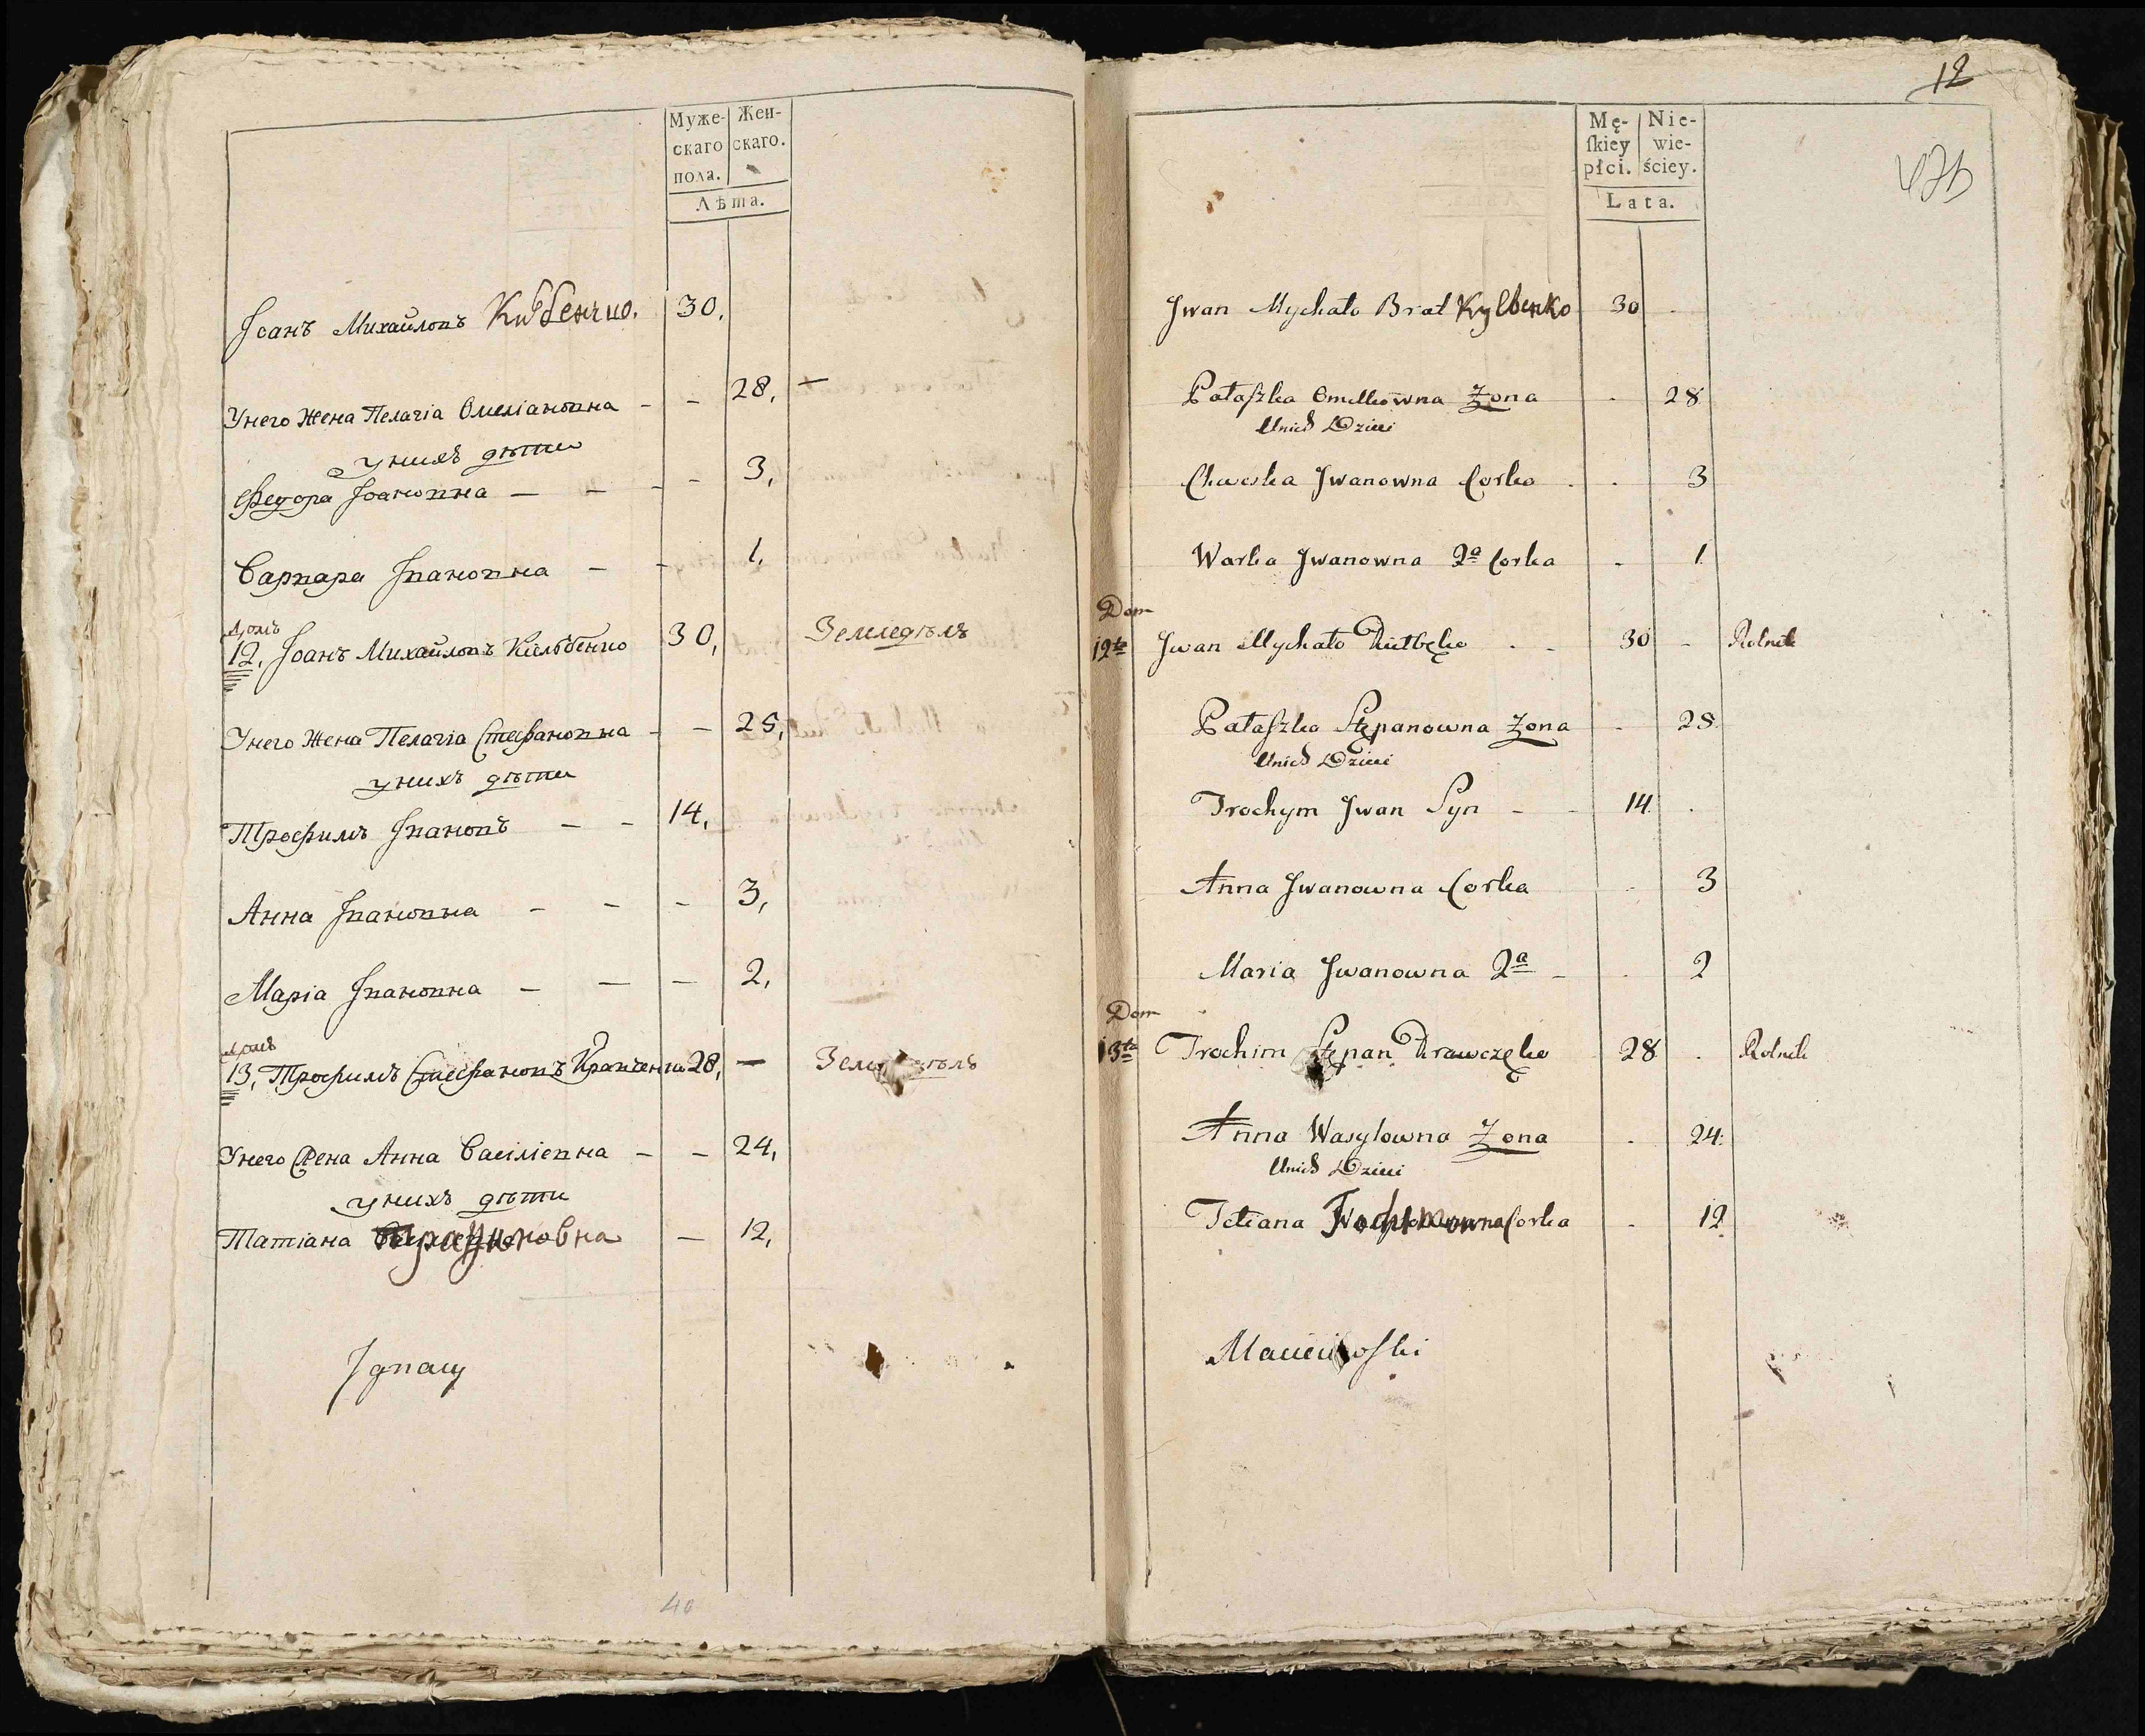 Муже-
скаго
пола.
Жен-
скаго.
Лѣта.
Іоанъ Михайловъ 30,
Унего Жена Пелагіа Омеліановна - - 28,
унихъ дѣти
Федора Іоановна - - - - 3,
Варвара Івановна - - 1,
Домъ
12, Іоанъ Михайловъ Кильбенко 30, Земледѣлъ
Унего Жена Пелагіа Стефановна - - 28,
унихъ дѣти
Трофимъ Івановъ - - 14,
Анна Івановна - - - 3,
Маріа Івановна - - - 2,
Домъ
13, Трофимъ Стефановъ Кравченко 28, -
Унего Жена Анна Василіевна - - 24,
унихъ дѣти
Татіана - 12,
Ignacy
40
12
Mę-
ſkiey
płci.
Nie-
wie-
ściey.
Lata.
Jwan Mychało Brat Kylbenko 30 -
Pałaſzka Omelkowna Żona . 28
Unich Dzieci
Jwanowna Corka . . 3
Warka Jwanowna 2a Corka . 1
Dom
12te Jwan Mychało . . 30 - Rolnik
Pałaſzka Stępanowna Żona . 28
Unich Dzieci
Trochym Jwan Syn - - 14 .
Anna Jwanowna Corka . 3
Maria Jwanowna 2a - . 2
Dom
13te Trochim Stępan Krawczęko 28 . Rolnik
Anna Wasylowna Żona . 24
Unich Dzieci
Tetiana Corka . 12